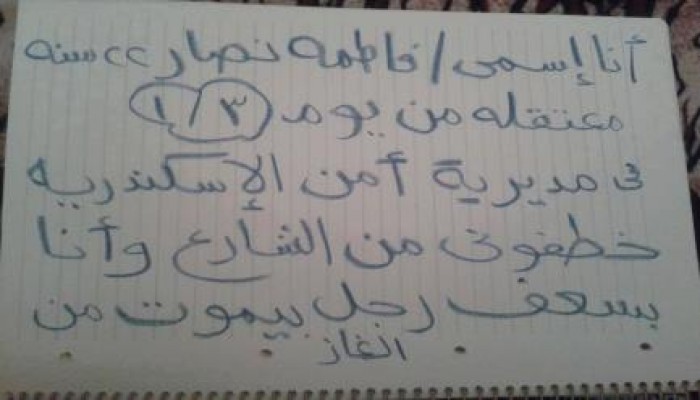 أنا إسمى / فاطمه نصار ٢٢ سنه
معتقله من يوم ٣ / ١
فى مديرية أمن الإسكندريه
خطفونى من الشارع وأنا
بسعف رجل بيموت من
الغاز